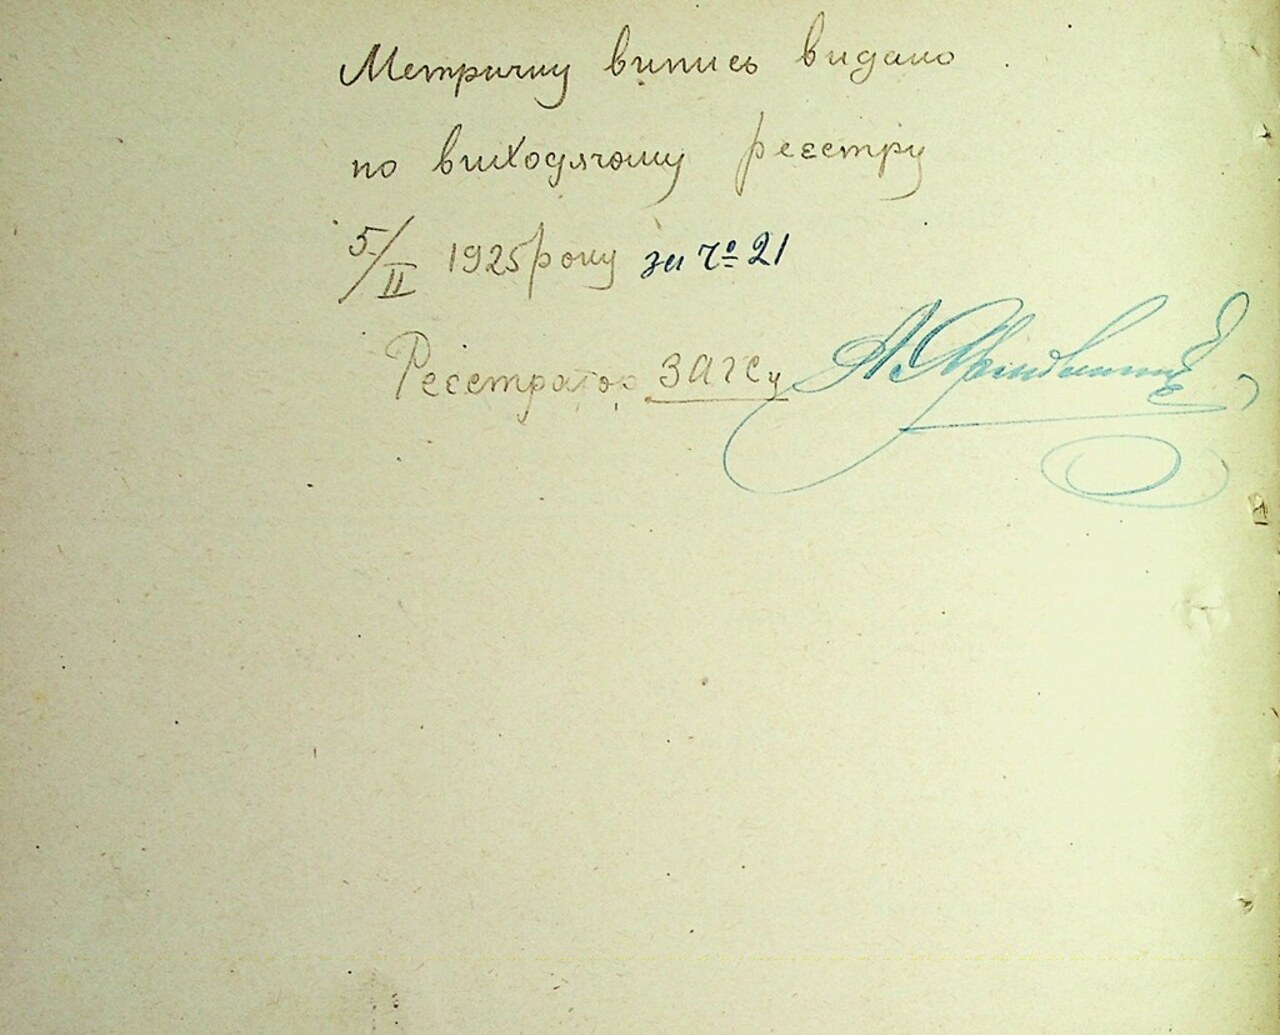 Метричну випись видано
по виходячому реєстру
5/II 1925 року за Ч<sup>о</sup> 21
Реєстратор ЗАГСу